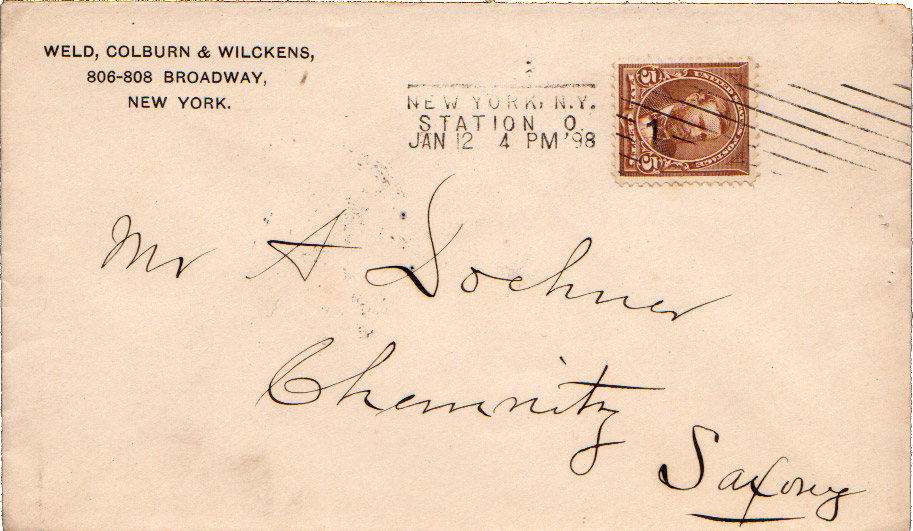 WELD, COLBURN & WILCKENS,
806-808 BROADWAY,
NEW YORK.
NEW YORK, N.Y.
STATION O.
JAN 12 4 PM '98
5 5
1
Mr A Dochner
Chemnitz
Saxony